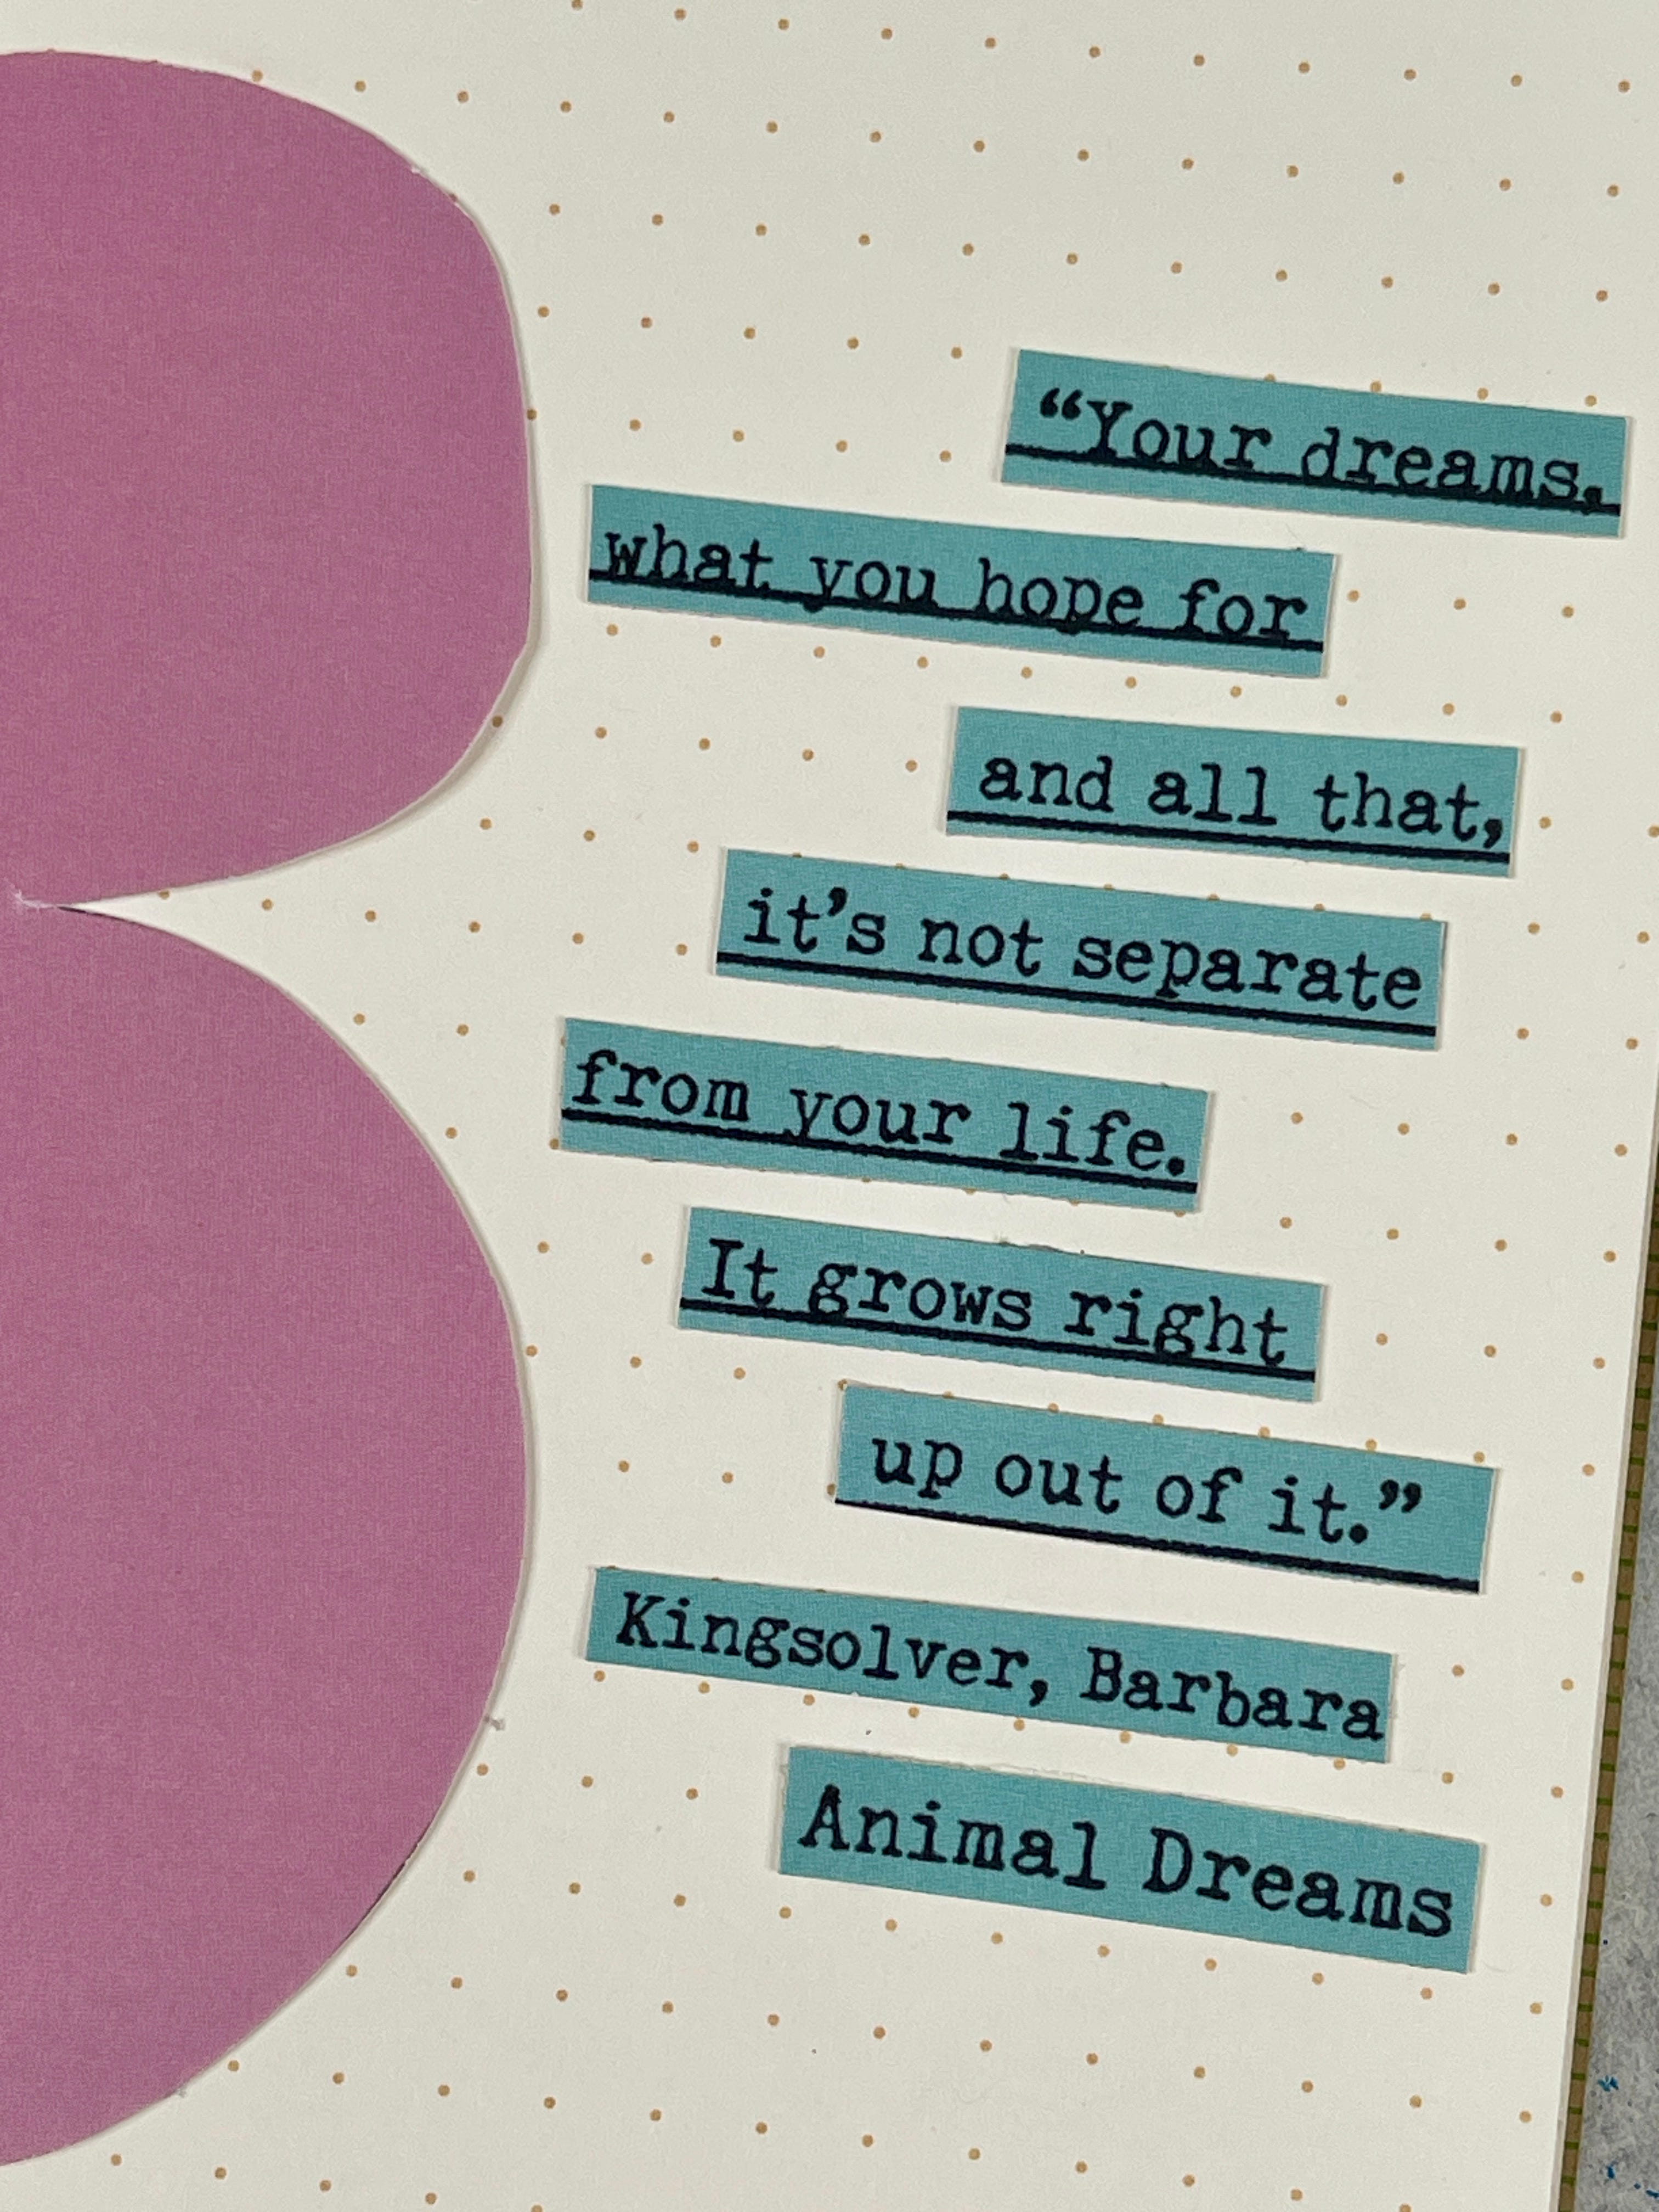 “Your dreams,
what you hope for
and all that,
it’s not separate
from your life.
It grows right
up out of it.”
Kingsolver, Barbara
Animal Dreams